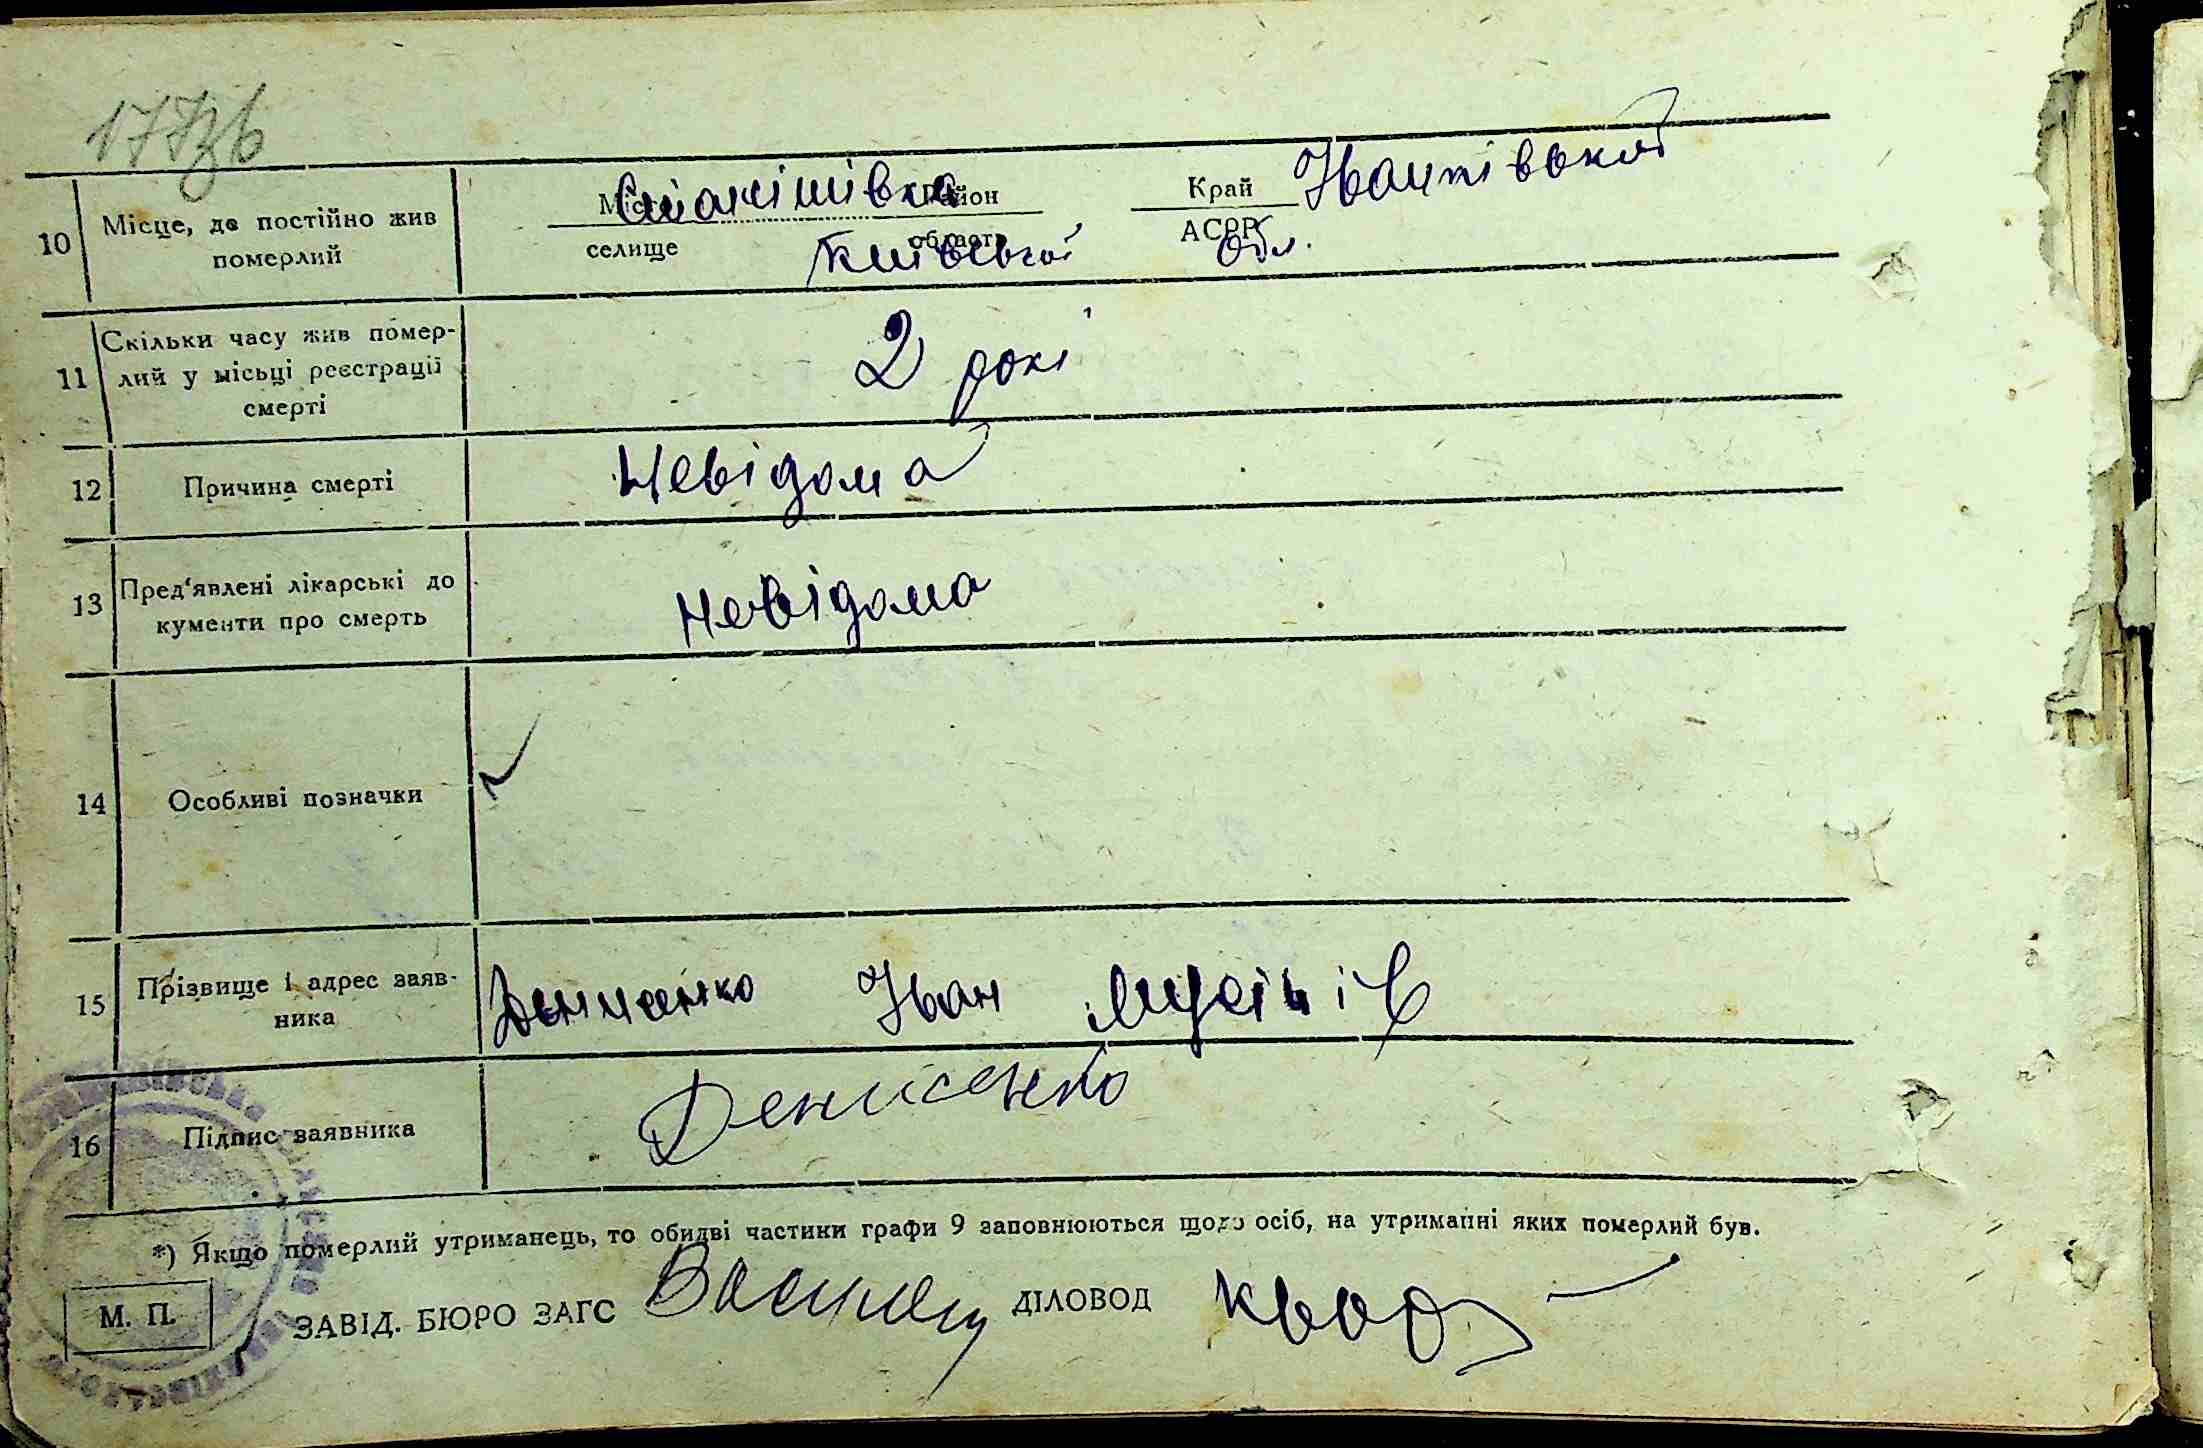 10 Місце, де постійно жив
померлий
Місто Район Край Іванківський
селище область АСРР
Київської Обл.
11 Скільки часу жив помер-
лий у місьці реєстрації
смерті
2 рокі
12 Причина смерті Невідома
13 Пред'явлені лікарські до
кументи про смерть
Невідома
14 Особливі позначки
15 Прізвище і адрес заяв-
ника
Денисенко Іван Мусійів
16 Підпис заявника Денисенко
*) Якщо померлий утриманець, то обидві частини графи 9 заповнюються щодо осіб, на утриманні яких померлий був.
М. П. ЗАВІД. БЮРО ЗАГС ДІЛОВОД